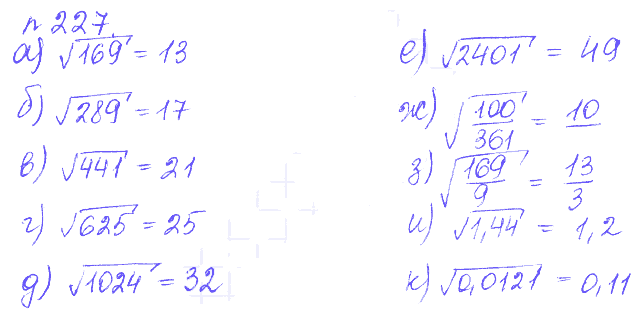 n 227.
а) √169 = 13
б) √289 = 17
в) √441 = 21
г) √625 = 25
д) √1024 = 32
е) √2401 = 49
ж) √100/361 = 10/
з) √169/9 = 13/3
и) √1,44 = 1,2
к) √0,0121 = 0,11